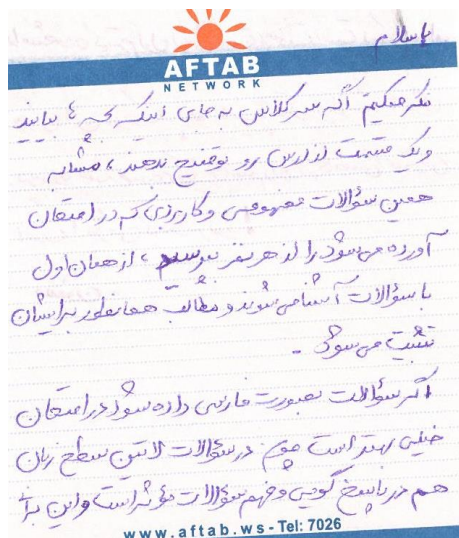 باسلام
AFTAB
NETWORK
فکر میکنم اگه سر کلاس به جای اینکه بچه ها بیایند
و یک قسمت از درس رو توضیح بدهند ، مشابه
همین سؤالات مفهومی و کاربردی که در امتحان
آورده می شود را از هر نفر بپرسید ، از همان اول
با سؤالات آشنا می شوند و مطالب همانطور برایشان
تثبیت می شود .
اگر سؤالات بصورت فارسی داده شود در امتحان
خیلی بهتر است چون در سؤالات لاتین سطح زبان
هم در پاسخ گویی و فهم سؤالات مؤثر است و این برای
www.aftab.ws - Tel: 7026